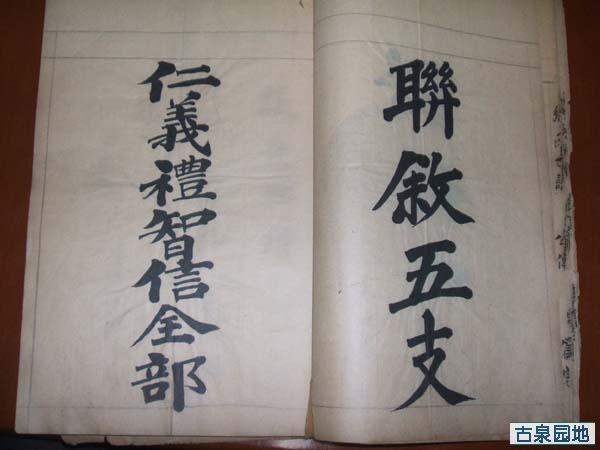 聯敘五支
仁義禮智信全部
古泉园地